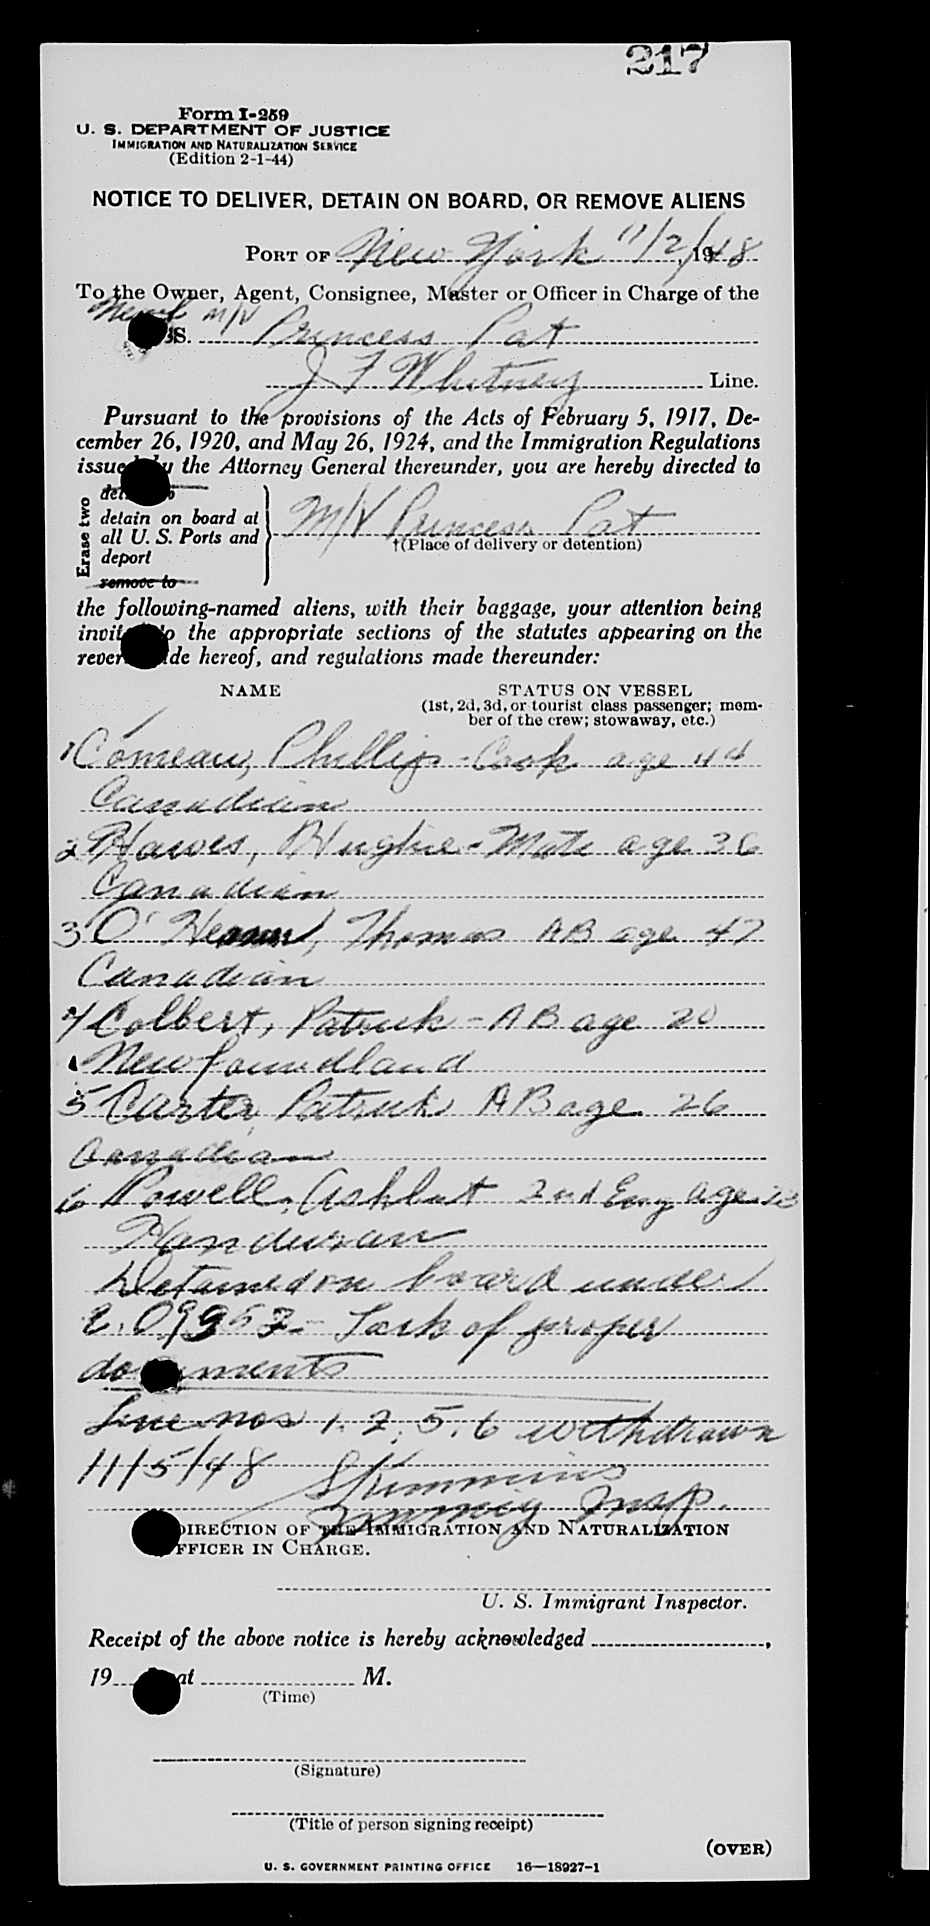 217
Form I-259
U. S. DEPARTMENT OF JUSTICE
IMMIGRATION AND NATURALIZATION SERVICE
(Edition 2-1-44)
NOTICE TO DELIVER, DETAIN ON BOARD, OR REMOVE ALIENS
PORT OF New York 11/2, 1948
To the Owner, Agent, Consignee, Master or Officer in Charge of the
SS. M/V Princess Pat
J F Whitney Line.
Pursuant to the provisions of the Acts of February 5, 1917, De-
cember 26, 1920, and May 26, 1924, and the Immigration Regulations
issued by the Attorney General thereunder, you are hereby directed to
Erase two
detain on board at
all U. S. Ports and
deport
remove to
M/V Princess Pat
†(Place of delivery or detention)
the following-named aliens, with their baggage, your attention being
invited to the appropriate sections of the statutes appearing on the
reverse side hereof, and regulations made thereunder:
NAME STATUS ON VESSEL
(1st, 2d, 3d, or tourist class passenger; mem-
ber of the crew; stowaway, etc.)
1 Comeau, Phillip - Cook age 44
Canadian
2 Hawes, Hughie - Mate age 36
Canadian
3 O' Thomas AB age 47
Canadian
4 Colbert, Patrick - AB age 20
Newfoundland
5 Carter, Patrick AB age 26
Canadian
6 Powell, 2nd Eng age
Honduran
Detained on board under
E.O 9352 - Lack of proper
documents
Line nos 1, 2, 5, 6 withdrawn
11/5/48 SKimmins
Immig Insp.
DIRECTION OF THE IMMIGRATION AND NATURALIZATION
OFFICER IN CHARGE.
U. S. Immigrant Inspector.
Receipt of the above notice is hereby acknowledged ,
19 at M.
(Time)
(Signature)
(Title of person signing receipt)
(OVER)
U. S. GOVERNMENT PRINTING OFFICE 16—18927-1